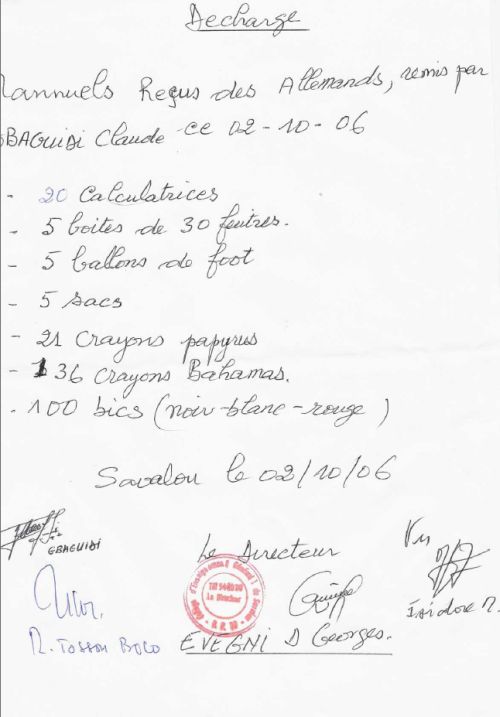 Decharge
Mannuels Reçus des Allemands, remis par
GBAGUIDI Claude ce 02-10-06
- 20 calculatrices
- 5 boites de 30 feutres.
- 5 ballons de foot
- 5 sacs
- 21 crayons papyrus
- 136 crayons Bahamas.
- 100 bics (noir-blanc-rouge)
Savalou le 02/10/06
GBAGUIDI
Le Directeur
Vu
Le Directeur
Isidore
EVEGNI D Georges.